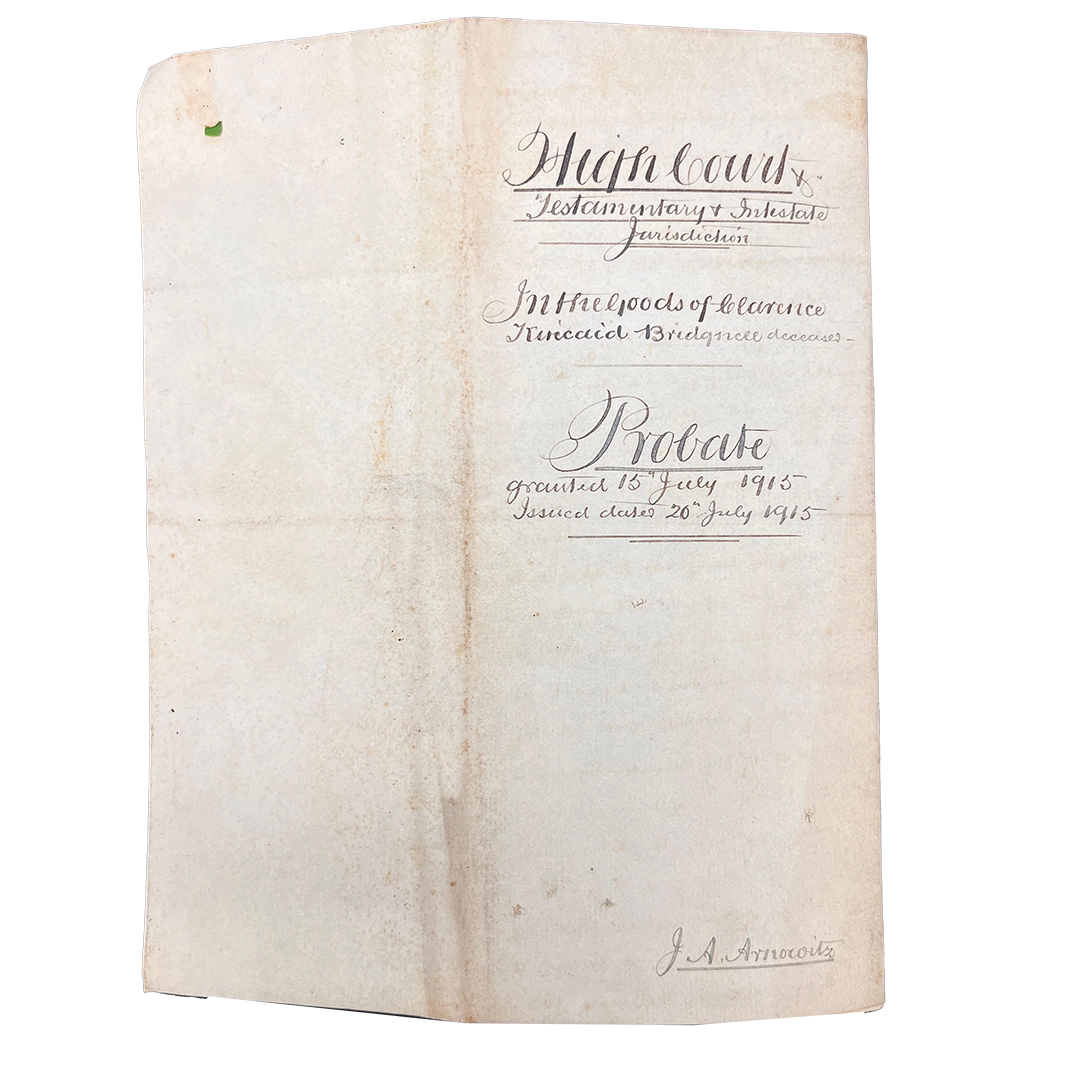 High Court &c"
Testamentary & Intestate
Jurisdiction
In the Goods of Clarence
Kincaid Bridgnell deceased
Probate
granted 15" July 1915
Issued dated 20" July 1915
J. A. Arnowitz